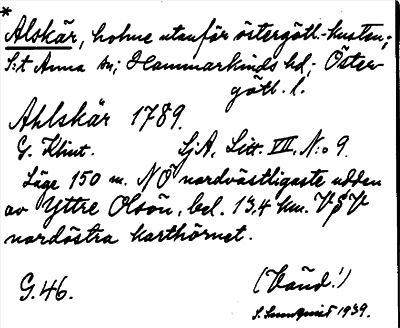 *
Alskär, holme utanför östergötl.-kusten;
S:t Anna sn; Hammarkinds hd; Öster-
götl. l.
Ahlskär 1789.
G. Klint. SjA, Litt. VII, N:o 9.
Läge 150 m. NÖ nordvästligaste udden
av Yttre Olsön, bel. 13,4 km. V§V
nordöstra karthörnet.
G.46.
(Vänd!)
S. Sundquist 1939.